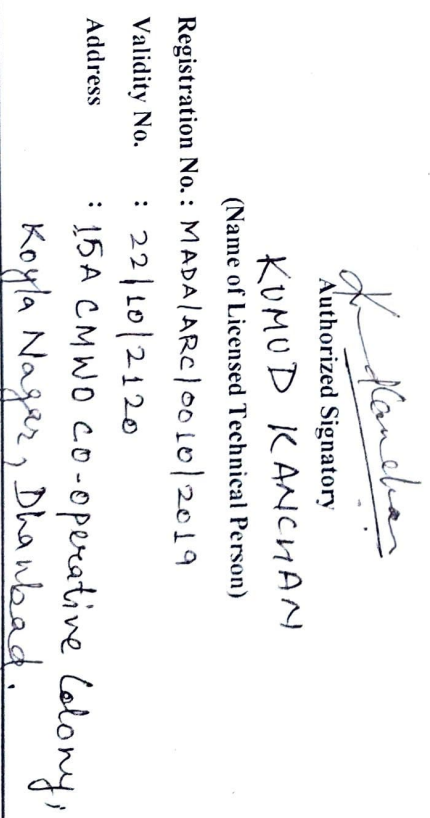 K Kanchan
Authorized Signatory
KUMUD KANCHAN
(Name of Licensed Technical Person)
Registration No. : MADA/ARC/0010/2019
Validity No. : 22/10/2120
Address : 15A CMWO CO-operative Colony,
Koyla Nagar, Dhanbad.